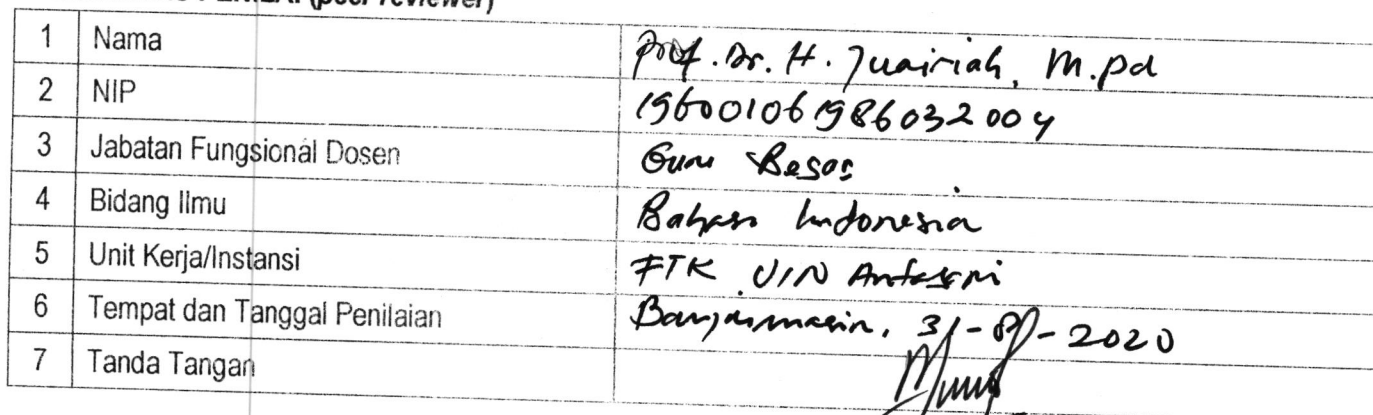 (peer reviewer)
1 Nama Prof. Dr. H. Juairiah, M.pd
2 NIP 196001061986032004
3 Jabatan Fungsional Dosen Guru Besar
4 Bidang Ilmu Bahasa Indonesia
5 Unit Kerja/Instansi FTK UIN Antasari
6 Tempat dan Tanggal Penilaian Banjarmasin, 31-8-2020
7 Tanda Tangan